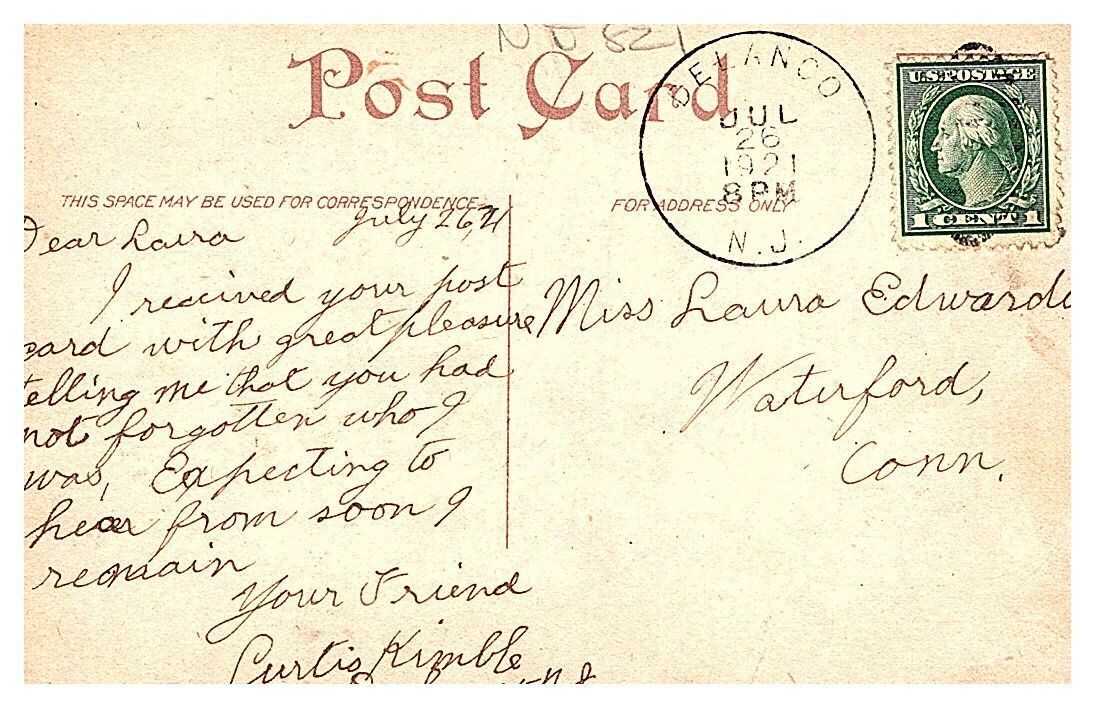 Post Card
DELANCO
JUL
26
1921
8 PM
N.J.
U.S. POSTAGE
1 CENT 1
THIS SPACE MAY BE USED FOR CORRESPONDENCE
FOR ADDRESS ONLY
July 26, 21
Dear Laura
I received your post
card with great pleasure
telling me that you had
not forgotten who I
was, Expecting to
hear from soon I
remain
Your Friend
Curtis Kimble
Miss Laura Edwards
Waterford,
Conn.